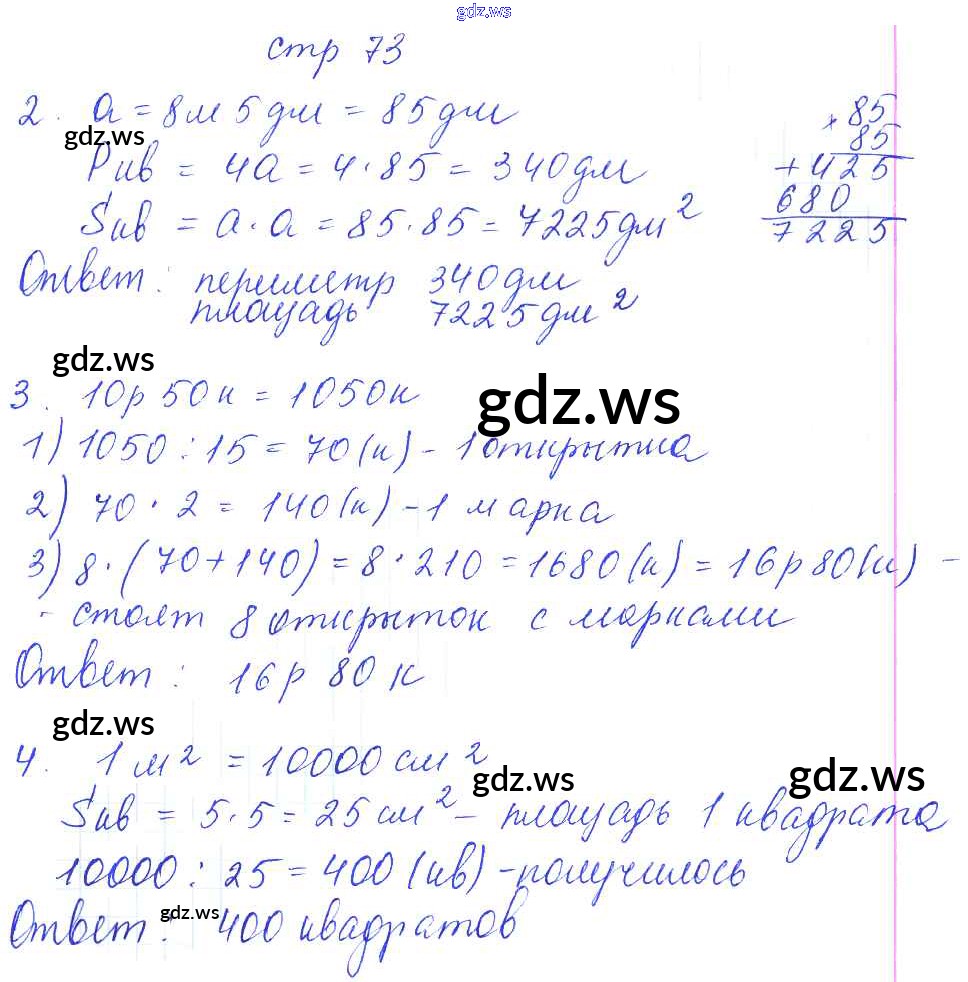 gdz.ws
стр 73
2. a = 8м 5дм = 85дм
gdz.ws
Pкв = 4a = 4·85 = 340дм
Sкв = a·a = 85·85 = 7225дм²
× 85
85
+ 425
680
7225
Ответ: периметр 340дм
площадь 7225дм²
gdz.ws
3. 10р 50к = 1050к
gdz.ws
1) 1050 : 15 = 70(к) - 1 открытка
2) 70 · 2 = 140(к) - 1 марка
3) 8·(70+140) = 8·210 = 1680(к) = 16р 80(к) -
- стоят 8 открыток с марками
Ответ: 16р 80к
gdz.ws
4. 1м² = 10000см²
gdz.ws gdz.ws
Sкв = 5·5 = 25см² - площадь 1 квадрата
10000 : 25 = 400(кв) - получилось
gdz.ws
Ответ: 400 квадратов